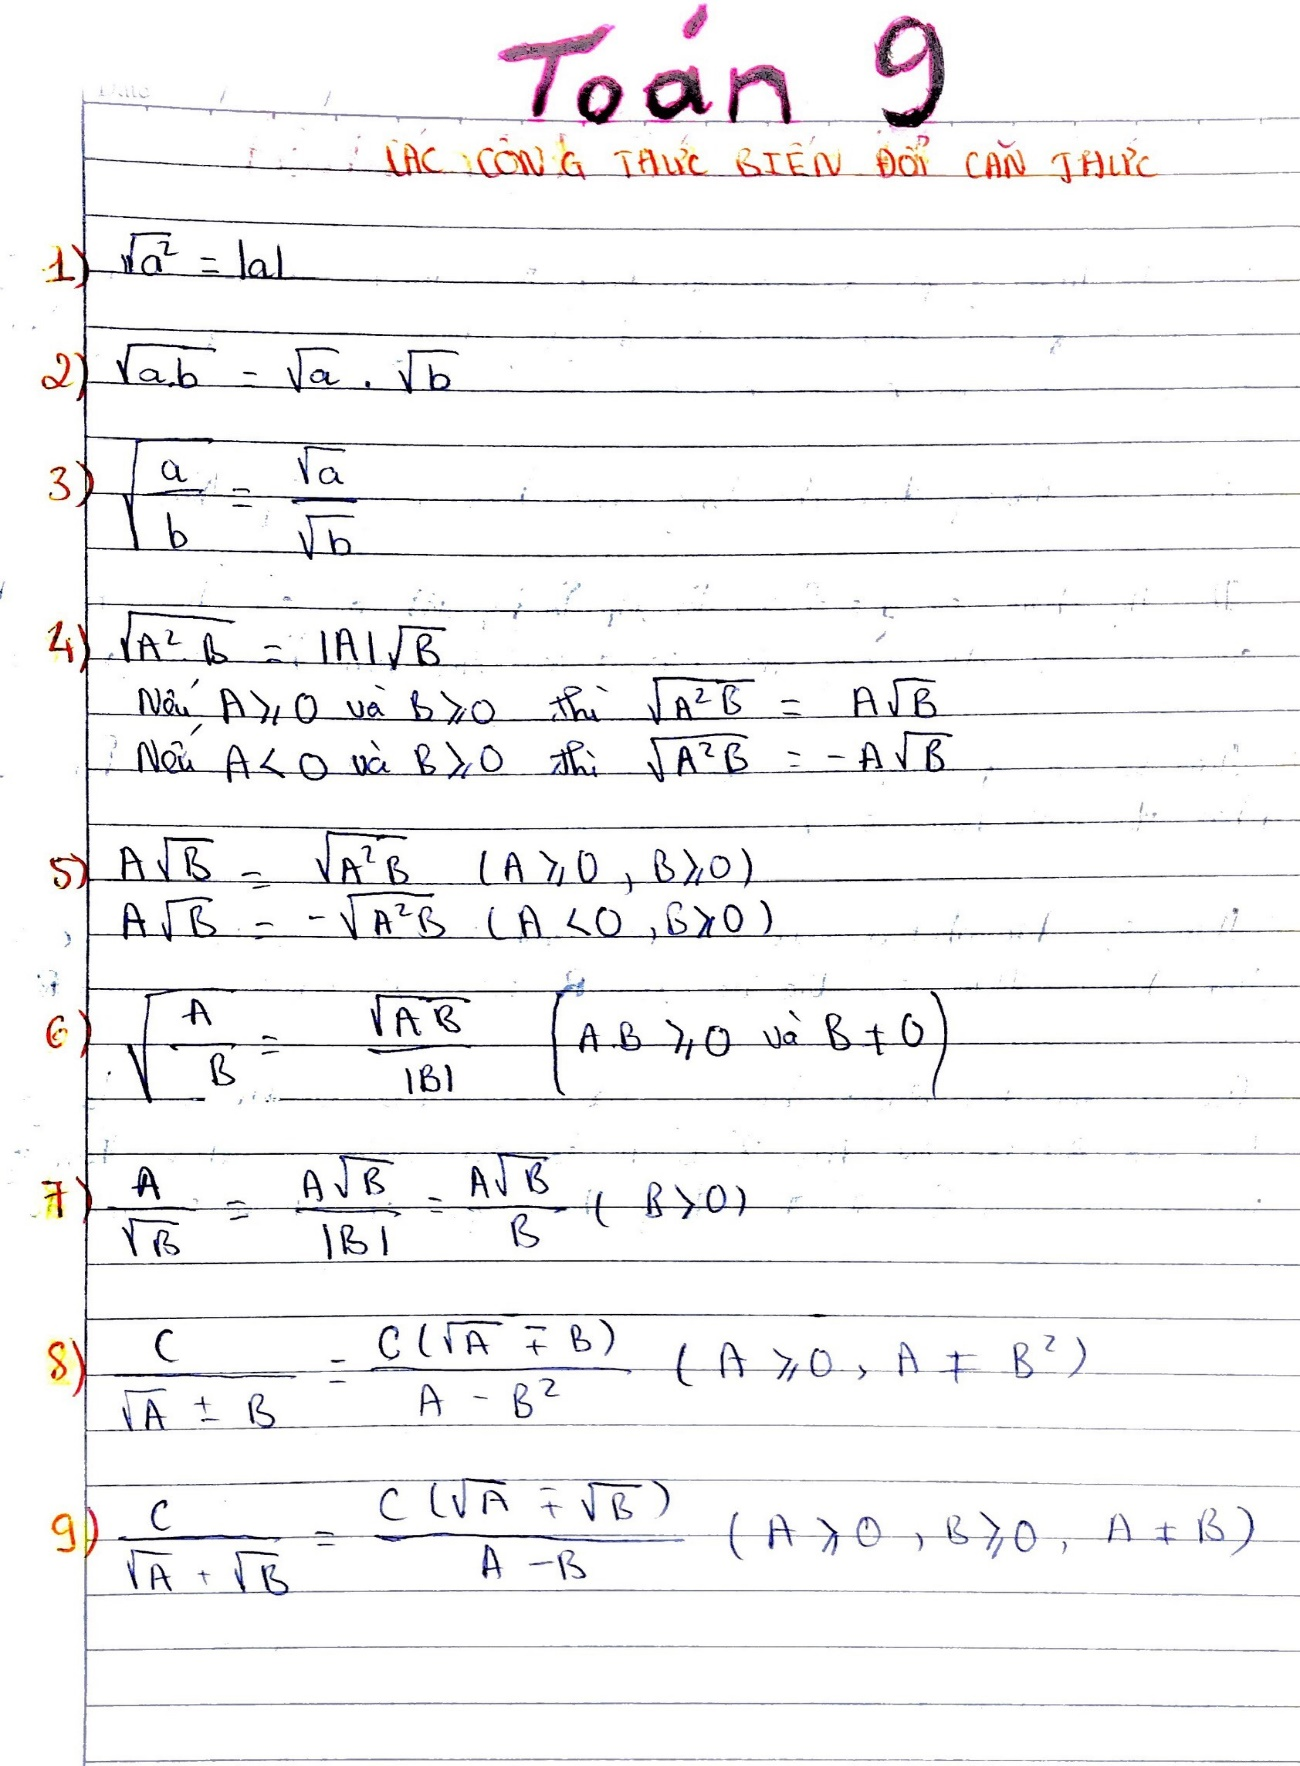 Date / /
Toán 9
CÁC CÔNG THỨC BIẾN ĐỔI CĂN THỨC
1) √a² = |a|
2) √a.b = √a . √b
3) √(a/b) = √a/√b
4) √A² B = |A|√B
Nếu A ⩾ 0 và B ⩾ 0 thì √A²B = A√B
Nếu A < 0 và B ⩾ 0 thì √A²B = -A√B
5) A√B = √A²B (A ⩾ 0, B ⩾ 0)
A√B = -√A²B (A < 0, B ⩾ 0)
6) √(A/B) = √AB/|B| (A.B ⩾ 0 và B ≠ 0)
7) A/√B = A√B/|B| = A√B/B (B > 0)
8) C/(√A ± B) = C(√A ∓ B)/(A - B²) (A ⩾ 0, A ≠ B²)
9) C/(√A + √B) = C(√A ∓ √B)/(A - B) (A ⩾ 0, B ⩾ 0, A ≠ B)